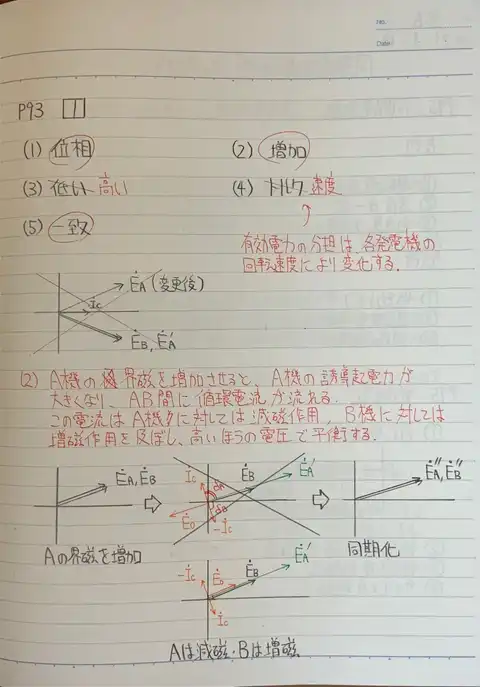 no.
Date
P93 1
(1) 位相 (2) 増加
(3) 低い 高い (4) トルク 速度
(5) 一致
有効電力の分担は、各発電機の
回転速度により変化する。
ĖA (変更後)
İc
ĖB, ĖA′
(2) A機の界磁を増加させると、A機の誘導起電力が
大きくなり、AB間に循環電流が流れる。
この電流はA機に対しては減磁作用、B機に対しては
増磁作用を及ぼし、高いほうの電圧で平衡する。
ĖA, ĖB
Aの界磁を増加
İc ĖB ĖA′
δA
δB
Ė0 -İc
ĖA″, ĖB″
同期化
-İc Ė0 ĖB ĖA′
İc
Aは減磁・Bは増磁